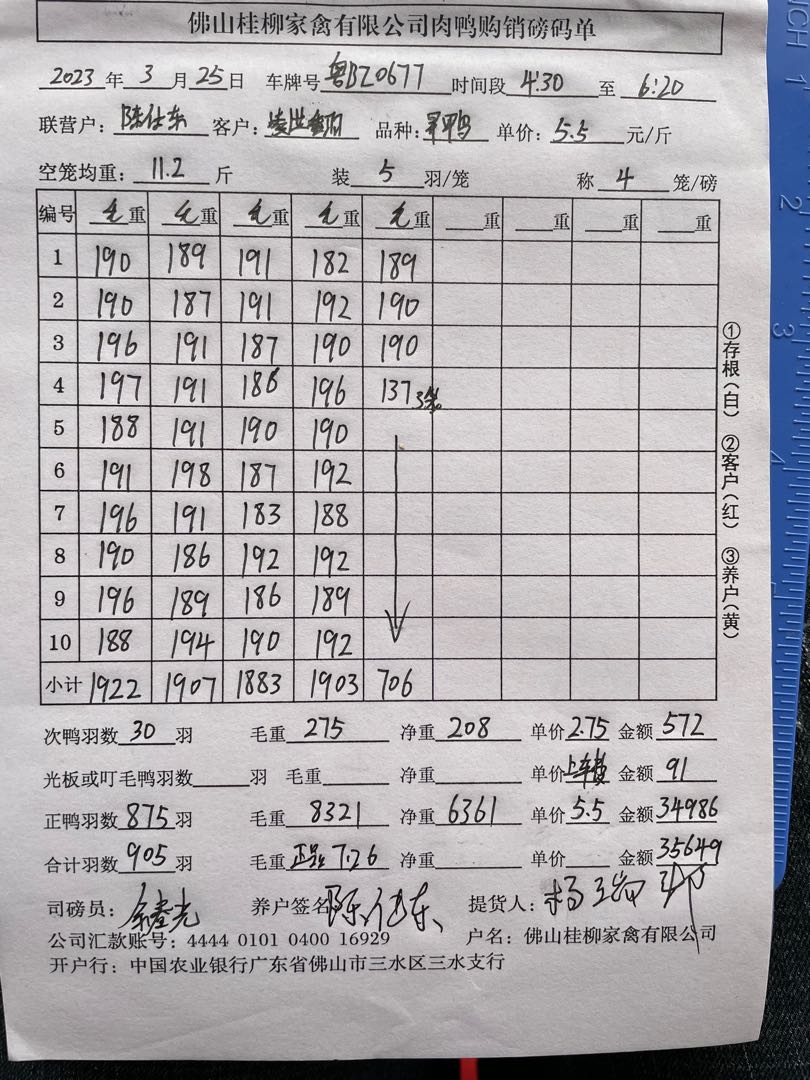 佛山桂柳家禽有限公司肉鸭购销磅码单
2023年3月25日 车牌号粤BZ0677 时间段4:30至6:20
联营户:陈仕东 客户: 品种: 单价:5.5元/斤
空笼均重:11.2斤 装5羽/笼 称4笼/磅
编号 毛重 毛重 毛重 毛重 毛重 重 重 重 重
1 190 189 191 182 189
2 190 187 191 192 190
3 196 191 187 190 190
4 197 191 186 196 137
5 188 191 190 190
6 191 198 187 192
7 196 191 183 188
8 190 186 192 192
9 196 189 186 189
10 188 194 190 192
小计 1922 1907 1883 1903 706
次鸭羽数30羽 毛重275 净重208 单价2.75 金额572
光板或叮毛鸭羽数 羽 毛重 净重 单价上车费 金额91
正鸭羽数875羽 毛重8321 净重6361 单价5.5 金额34986
合计羽数905羽 毛重正品7.26 净重 单价 金额35649
司磅员: 养户签名陈仕东 提货人:
公司汇款账号:4444 0101 0400 16929 户名:佛山桂柳家禽有限公司
开户行:中国农业银行广东省佛山市三水区三水支行
①存根(白) ②客户(红) ③养户(黄)
INCH 1
2
3
4
5